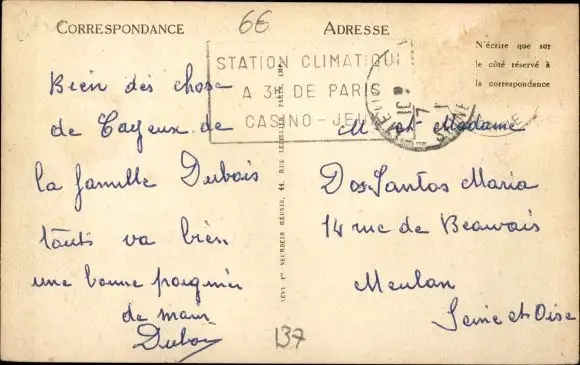 CORRESPONDANCE
66
ADRESSE
N'écrire que sur
le côté réservé à
la correspondance
STATION CLIMATIQU
A 3H DE PARIS
CASINO - JEU
Bien des chose
de Cayeux de
la famille Dubois
touts va bien
une bonne poignée
de main
Dubois
137
LEVY & NEURDEIN RÉUNIS, 44, RUE LETELLIER, PARIS, IMP.
M et Madame
Dos Santos Maria
14 rue de Beauvais
Meulan
Seine et Oise